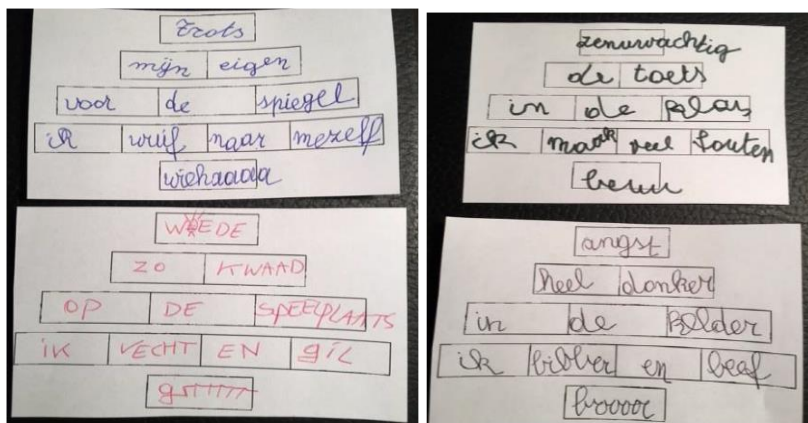 trots
mijn eigen
voor de spiegel
ik wuif naar mezelf
wiehaaaa
WOEDE
ZO KWAAD
OP DE SPEELPLAATS
iK VECHT EN giL
grrrrrr
zenuwachtig
de toets
in de klas
ik maak veel fouten
angst
heel donker
in de kelder
ik bibber en beef
brooor